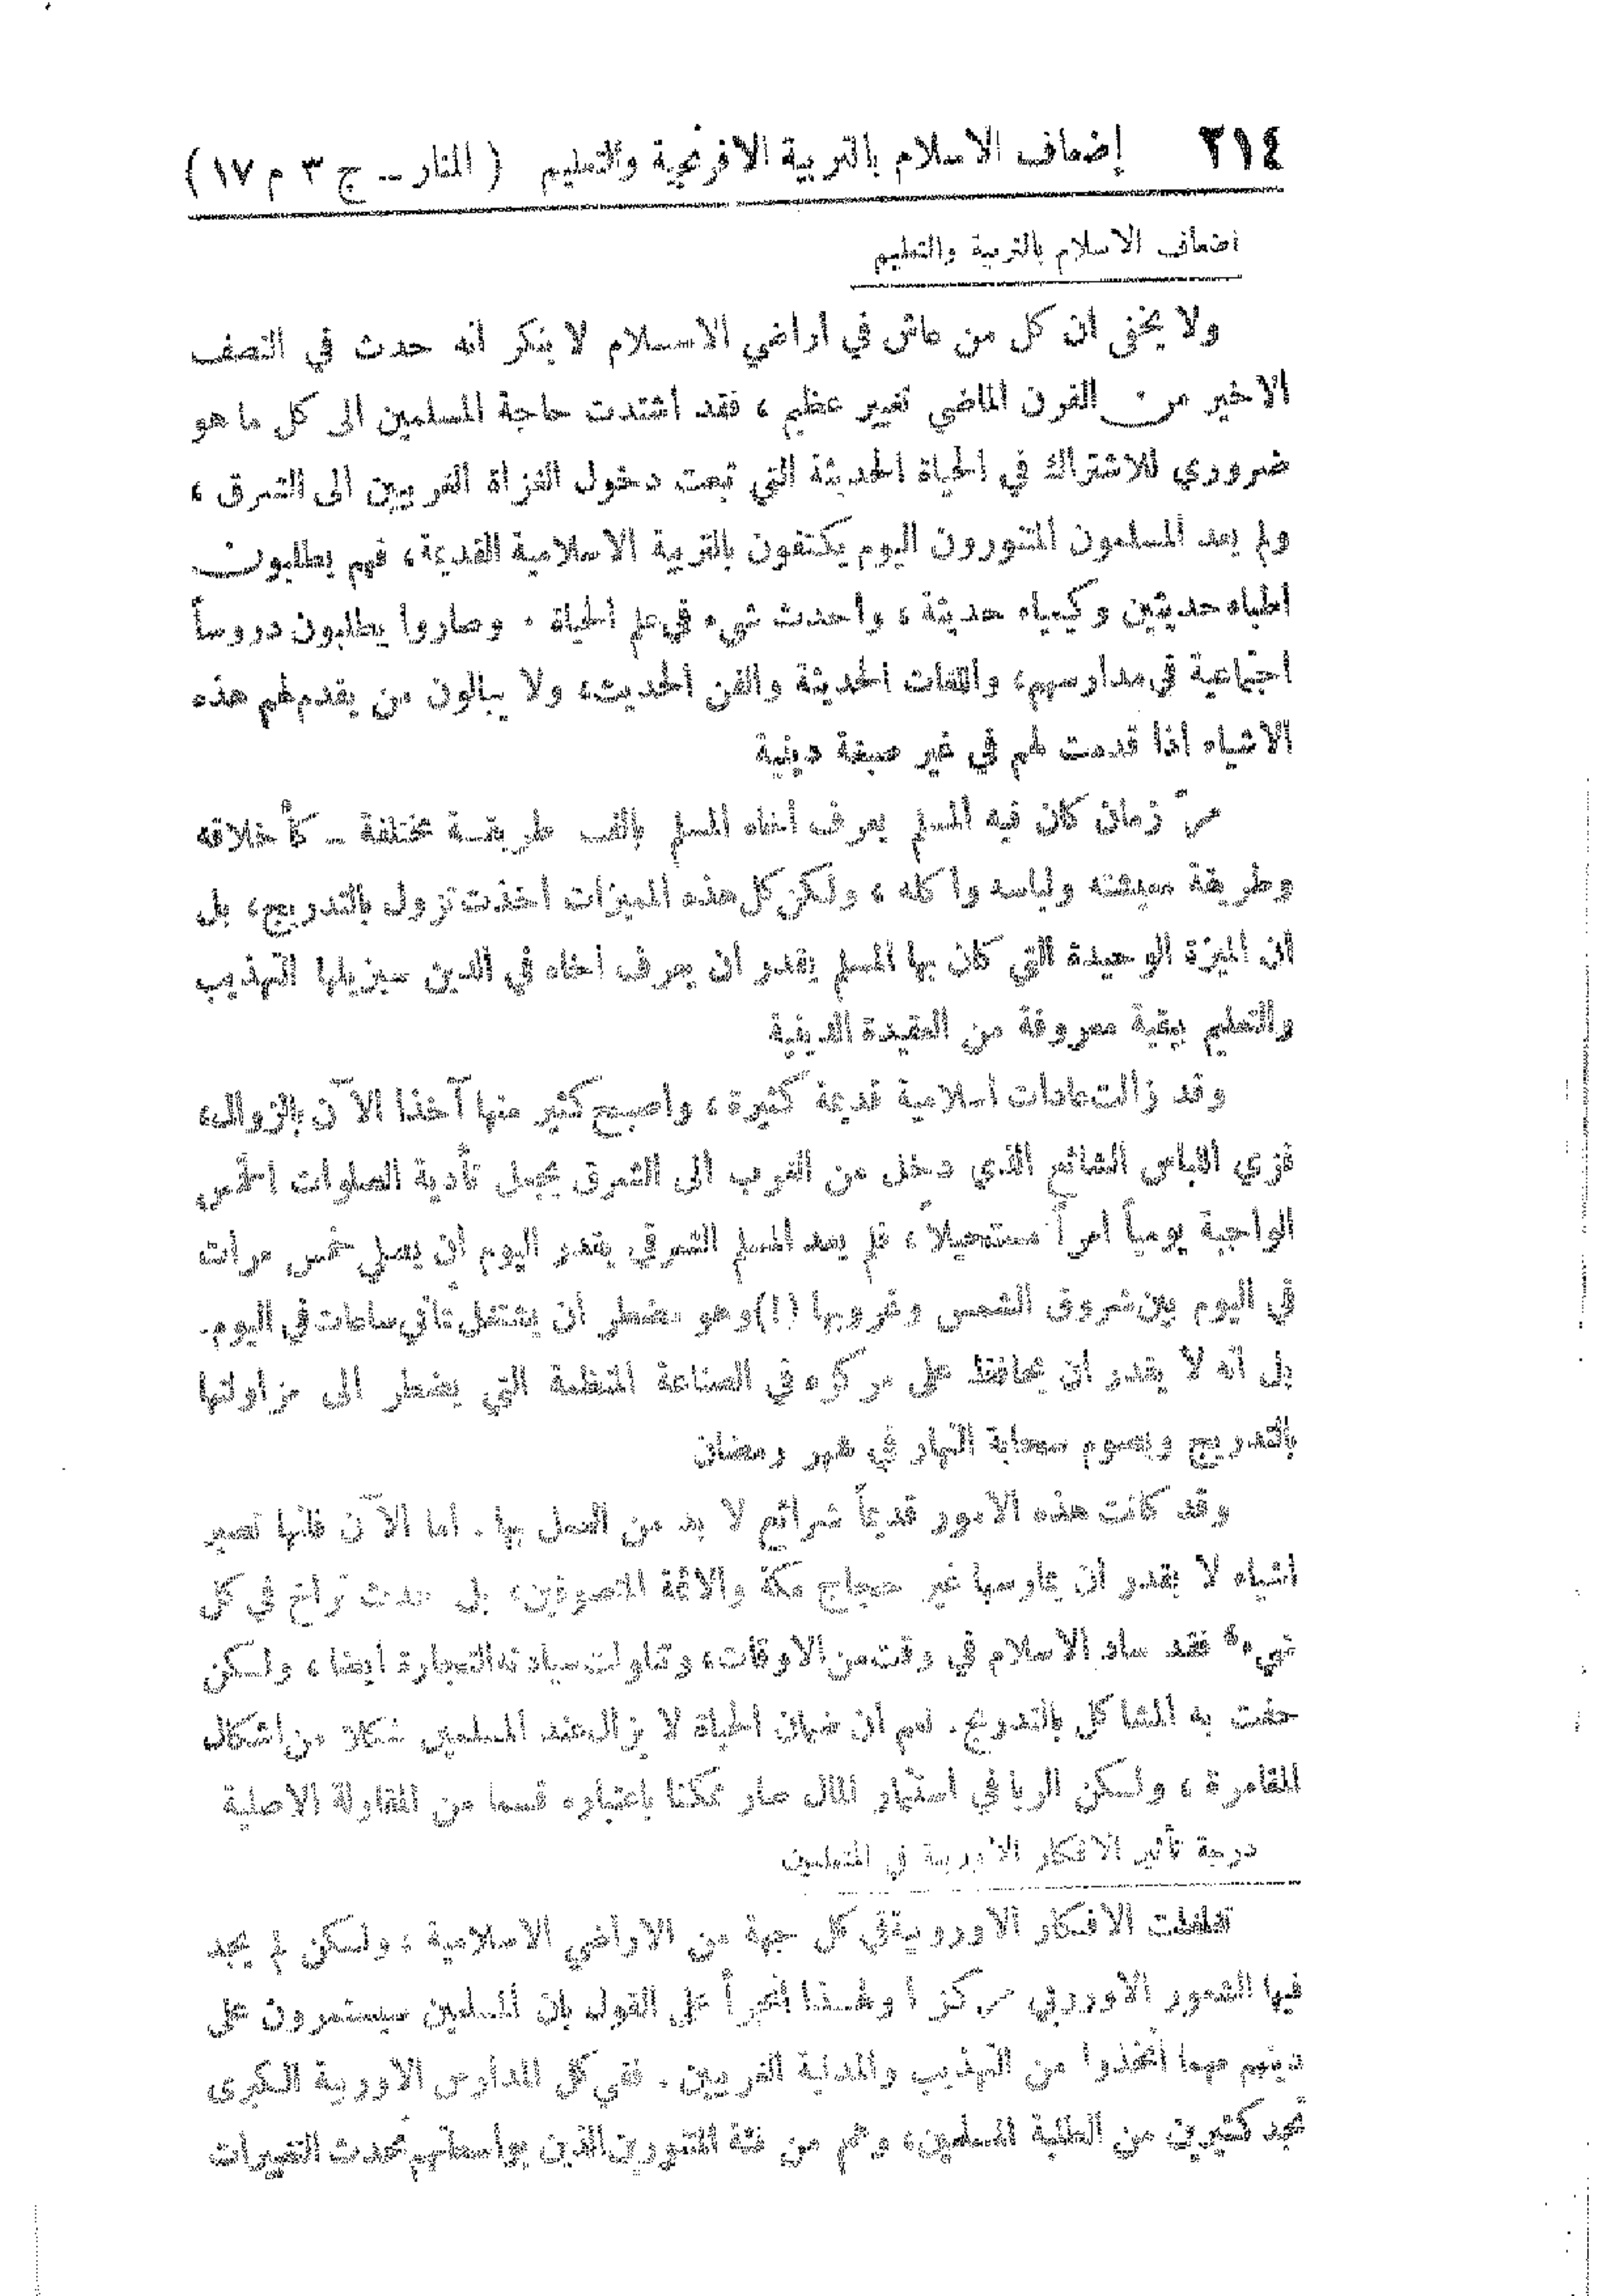 ٢١٤ إضعاف الاسلام بالتربية الافرنجية والتعليم ( المنار – ج ٣ م ١٧ )
اضعاف الاسلام بالتربية والتعليم
ولا يخفى ان كل من عاش في اراضي الاسلام لا ينكر انه حدث في النصف
الاخير من القرن الماضي تغير عظيم ، فقد اشتدت حاجة المسلمين الى كل ما هو
ضروري للاشتراك في الحياة الحديثة التي تبعت دخول الغزاة الغربيين الى الشرق ،
ولم يعد المسلمون المتنورون اليوم يكتفون بالتربية الاسلامية القديمة ، فهم يطلبون
اطباء حديثين وكيمياء حديثة ، وأحدث شيء في علم الحياة . وصاروا يطلبون دروساً
اجتماعية في مدارسهم، واللغات الحديثة والفن الحديث، ولا يبالون من يقدم لهم هذه
الاشياء اذا قدمت لهم في غير صبغة دينية
مرّ زمان كان فيه المسلم يعرف أخاه المسلم بألف طريقة مختلفة – كأخلاقه
وطريقة معيشته ولباسه وأكله ، ولكن كل هذه المميزات أخذت تزول بالتدريج، بل
ان الميزة الوحيدة التي كان بها المسلم يقدر ان يعرف أخاه في الدين سيزيلها التهذيب
والتعليم ببقية معروفة من العقيدة الدينية
وقد زالت عادات اسلامية قديمة كثيرة ، واصبح كثير منها آخذا الآن بالزوال،
فزي اللباس الشائع الذي دخل من الغرب الى الشرق يجعل تأدية الصلوات الخمس
الواجبة يومياً امراً مستحيلاً ، فلم يعد المسلم الشرقي يقدر اليوم أن يصلي خمس مرات
في اليوم بين شروق الشمس وغروبها (!) وهو مضطر أن يشتغل ثماني ساعات في اليوم.
بل انه لا يقدر ان يحافظ على مركزه في الصناعة المنظمة التي يضطر الى مزاولتها
بالتدريج ويصوم سحابة النهار في شهر رمضان
وقد كانت هذه الامور قديماً شرائع لا بد من العمل بها . أما الآن فانها تصير
اشياء لا يقدر ان يمارسها غير حجاج مكة والائمة المتصوفين، بل حدث تراخ في كل
شيء فقد ساد الاسلام في وقت من الاوقات، وتناولت سيادته التجارة ايضا ، ولكن
حفت به المشاكل بالتدريج. نعم ان ضمان الحياة لا يزال عند المسلمين شكلا من اشكال
المقامرة ، ولكن الربا في استثمار المال صار ممكنا باعتباره قسما من المقاولة الاصلية
درجة تأثير الافكار الاوربية في المتعلمين
تغلغلت الافكار الاوروبية في كل جهة من الاراضي الاسلامية ، ولكن لم يجد
فيها الشعور الاوربي مركزا ولهذا أتجرأ على القول بان المسلمين سيستمرون على
دينهم مهما أتخذوا من التهذيب والمدنية الغربيين . ففي كل المدارس الاوربية الكبرى
تجد كثيرين من الطلبة المسلمين، وهم من فئة المتنورين الذين بواسطتهم تحدث التغييرات